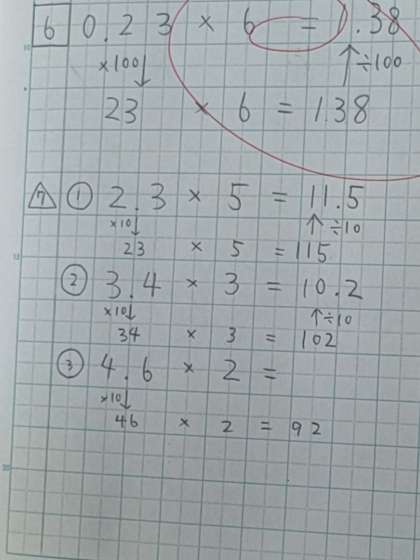 6 0.23 × 6 = 1.38
×100↓ ↑÷100
23 × 6 = 138
7 ① 2.3 × 5 = 11.5
×10↓ ↑÷10
23 × 5 = 115
② 3.4 × 3 = 10.2
×10↓ ↑÷10
34 × 3 = 102
③ 4.6 × 2 =
×10↓
46 × 2 = 92